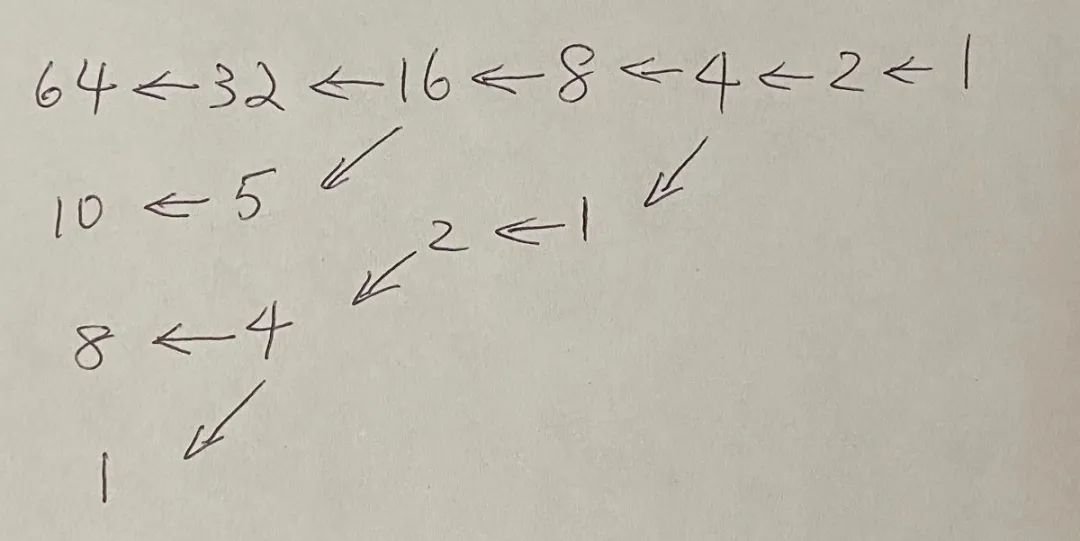 64 ← 32 ← 16 ← 8 ← 4 ← 2 ← 1
↙ ↙
10 ← 5
2 ← 1
↙
8 ← 4
↙
1